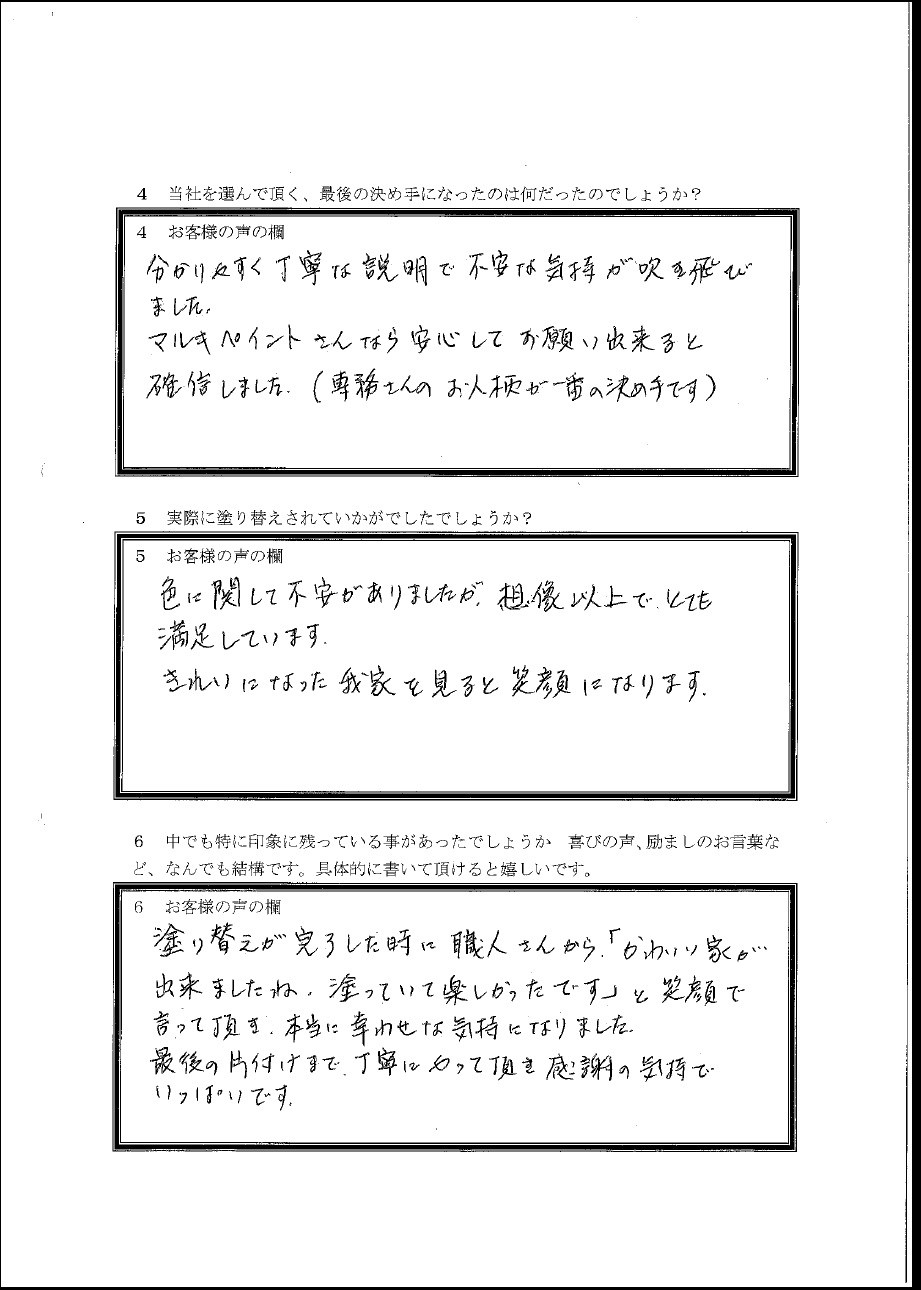 4　当社を選んで頂く、最後の決め手になったのは何だったのでしょうか？
4　お客様の声の欄
分かりやすく丁寧な説明で不安な気持が吹き飛び
ました.
マルキペイントさんなら安心してお願い出来ると
確信しました.（専務さんのお人柄が一番の決め手です）
5　実際に塗り替えされていかがでしたでしょうか？
5　お客様の声の欄
色に関して不安がありましたが、想像以上で とても
満足しています.
きれいになった我家を見ると笑顔になります.
6　中でも特に印象に残っている事があったでしょうか　喜びの声、励ましのお言葉な
ど、なんでも結構です。具体的に書いて頂けると嬉しいです。
6　お客様の声の欄
塗り替えが完了した時に職人さんから、「かわいい家が…
出来ましたね、塗っていて楽しかったです」と笑顔で
言って頂き、本当に幸わせな気持になりました.
最後の片付けまで、丁寧にやって頂き感謝の気持で
いっぱいです.